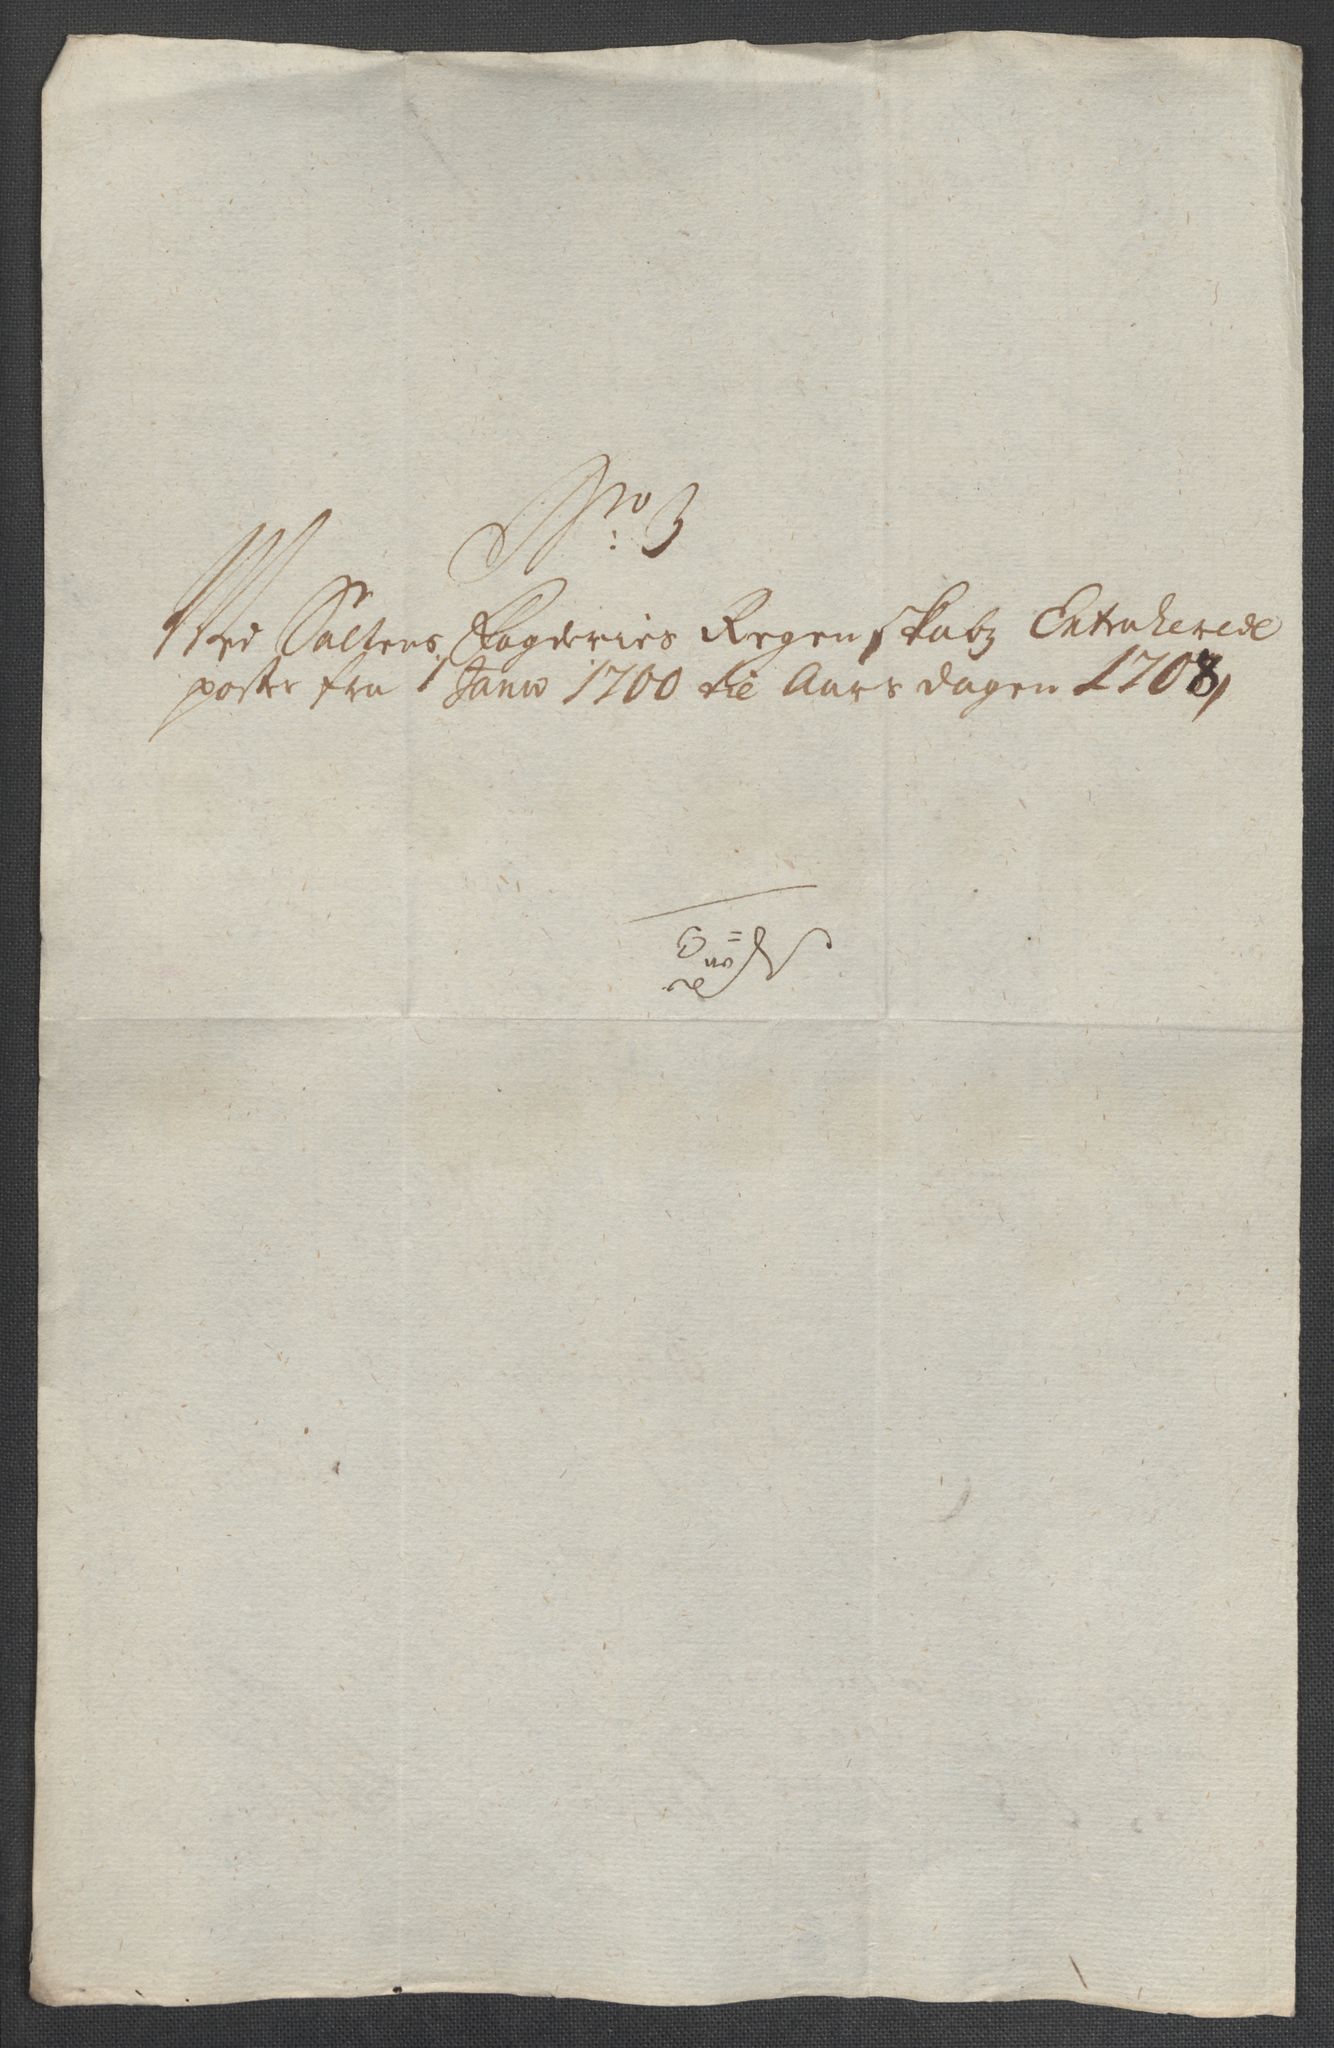 No: 3
Ved Saltens Fogderies Regenskabz Extraherede
poster fra 1 Janw 1700 til Aars dagen 1708,